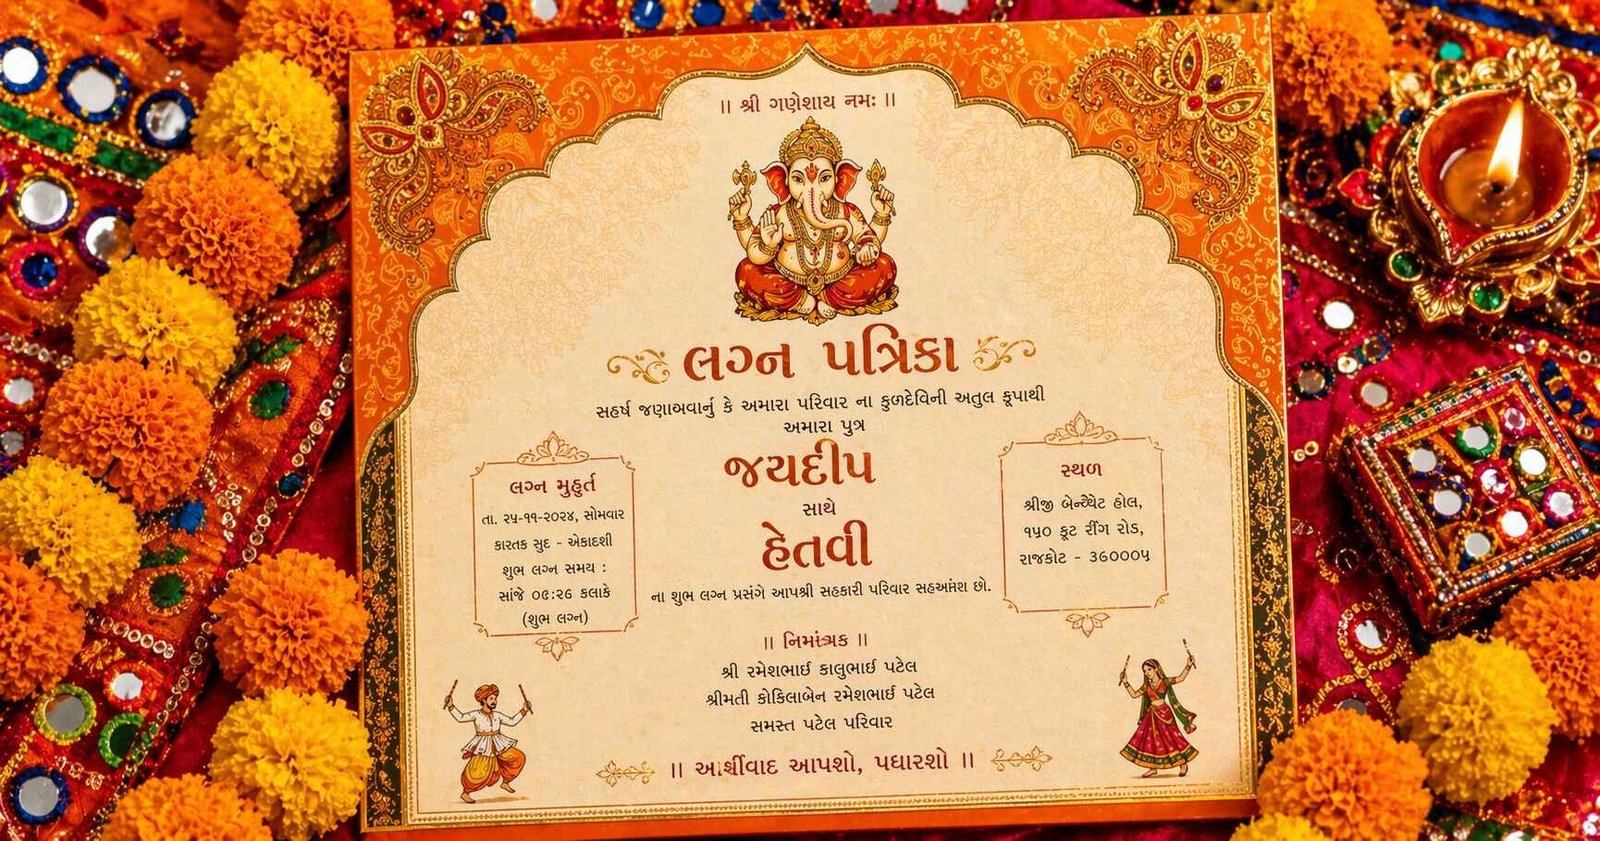 ॥ શ્રી ગણેશાય નમઃ ॥
લગ્ન પત્રિકા
સહર્ષ જણાબવાર્નુ કે અમારા પરિવાર ના કુળદેવિની અતુલ કૃપાથી
અમારા પુત્ર
જયદીપ
સાથે
હેતવી
ના શુભ લગ્ન પ્રસંગે આપશ્રી સહકારી પરિવાર છો.
લગ્ન મુહુર્ત
તા. ૨૫-૧૧-૨૦૨૪, સોમવાર
કારતક સુદ - એકાદશી
શુભ લગ્ન સમય :
સાંજે ૦૯:૨૬ કલાકે
(શુભ લગ્ન)
સ્થળ
શ્રીજી હોલ,
૧૫૦ ફૂટ રીંગ રોડ,
રાજકોટ - ૩૬૦૦૦૫
॥ ॥
શ્રી રમેશભાઈ કાલુભાઈ પટેલ
શ્રીમતી કોકિલાબેન રમેશભાઈ પટેલ
સમસ્ત પટેલ પરિવાર
॥ આપશો, પધારશો ॥